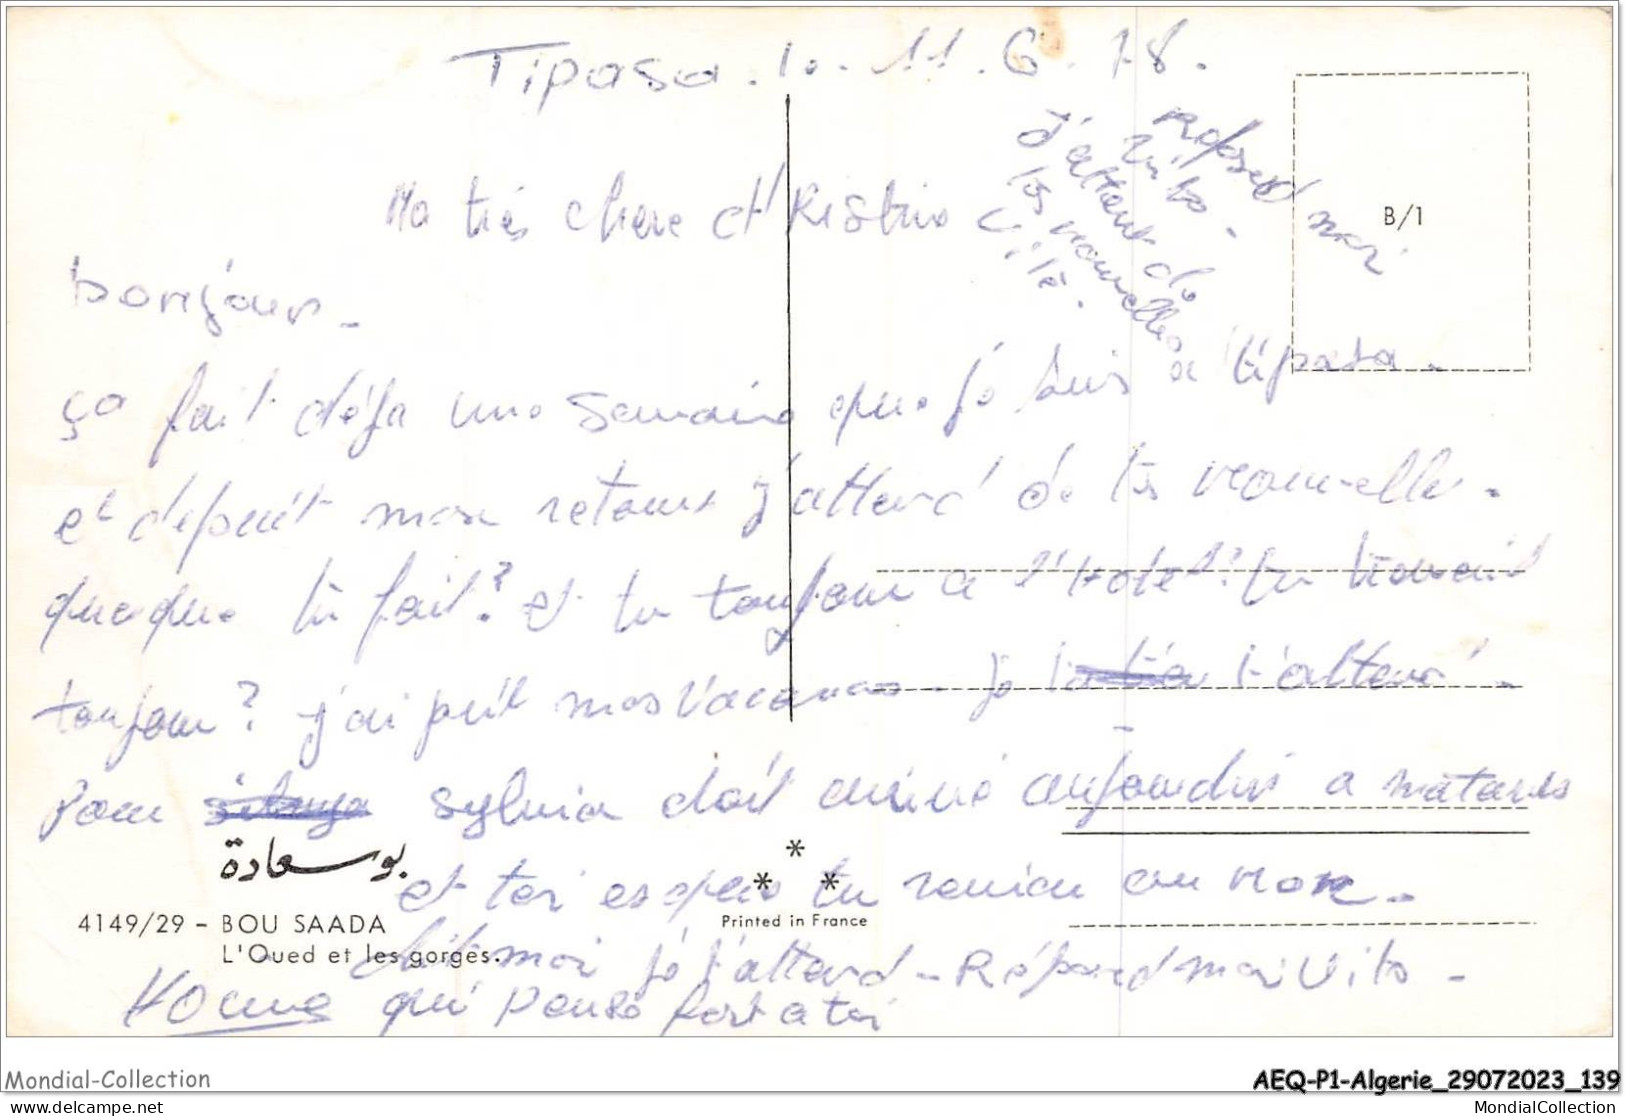 Tipasa. le. 11. 6. 78.
Ma tres chere christine
bonjour.
ça fait déja une semaine que je suis a tipasa.
et depuit mon retour j'attend de tes nouvelle.
queque tu fait? et tu toujour a l'Hotel? tu travait
toujour? j'ai prit mes vacances. je t'attend.
Pour sylvia doit arrivé aujourdui a matares
et toi espere tu revien au
dit moi je t'attend - Répond moi Vite -
qui pense fort a toi
Repond moi
Vite.
J'attend de
tes nouvelles
Vite.
B/1
بوسعادة
4149/29 - BOU SAADA
L'Oued et les gorges.
* * *
Printed in France
Mondial-Collection
AEQ-P1-Algerie_29072023_139
delcampe.net
MondialCollection